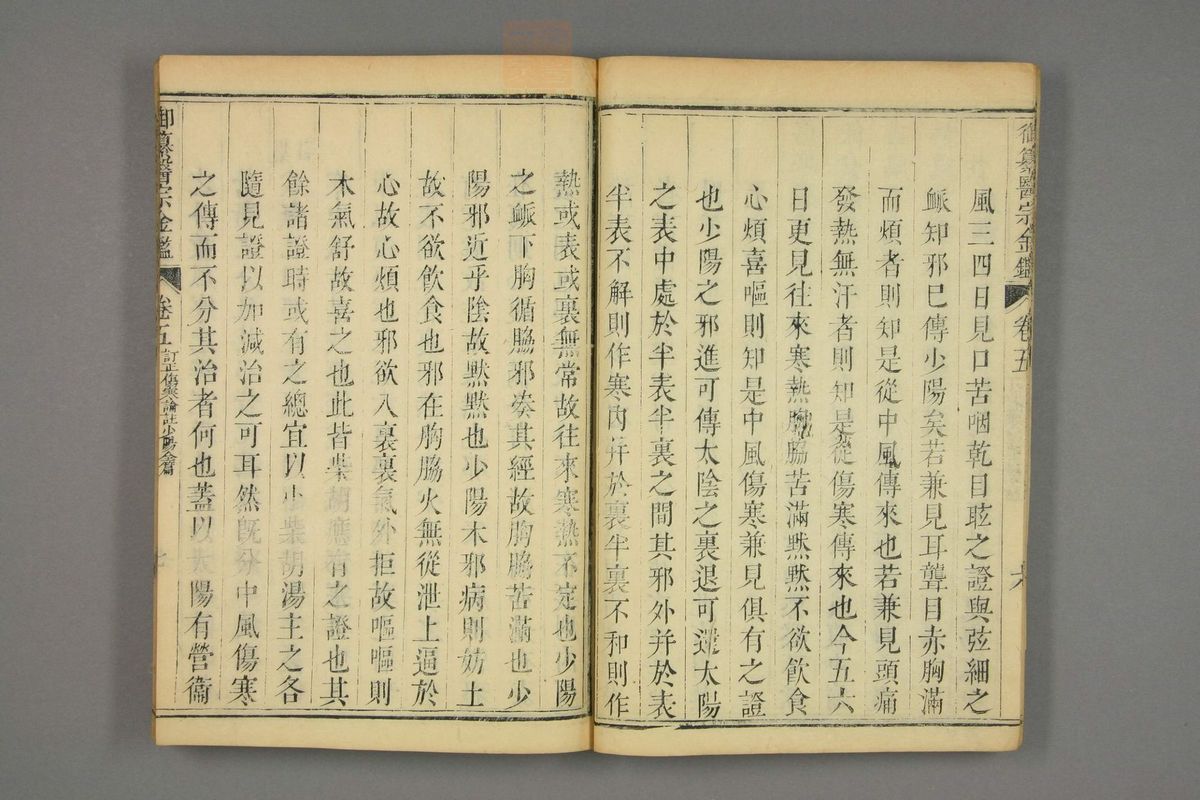 御纂醫宗金鑑 卷五 六
風三四日見口苦咽乾目眩之證與弦細之
脈知邪已傳少陽矣若兼見耳聾目赤胸滿
而煩者則知是從中風傳來也若兼見頭痛
發熱無汗者則知是從傷寒傳來也今五六
日更見往來寒熱胸脇苦滿默默不欲飲食
心煩喜嘔則知是中風傷寒兼見俱有之證
也少陽之邪進可傳太陰之裏退可還太陽
之表中處於半表半裏之間其邪外并於表
半表不解則作寒內并於裏半裏不和則作
熱或表或裏無常故往來寒熱不定也少陽
之脈下胸循脇邪凑其經故胸脇苦滿也少
陽邪近乎陰故默默也少陽木邪病則妨土
故不欲飲食也邪在胸脇火無從泄上逼於
心故心煩也邪欲入裏裏氣外拒故嘔嘔則
木氣舒故喜之也此皆柴胡應有之證也其
餘諸證時或有之總宜以小柴胡湯主之各
隨見證以加減治之可耳然既分中風傷寒
之傳而不分其治者何也蓋以太陽有營衞
御纂醫宗金鑑 卷五 訂正傷寒論註少陽全篇 七